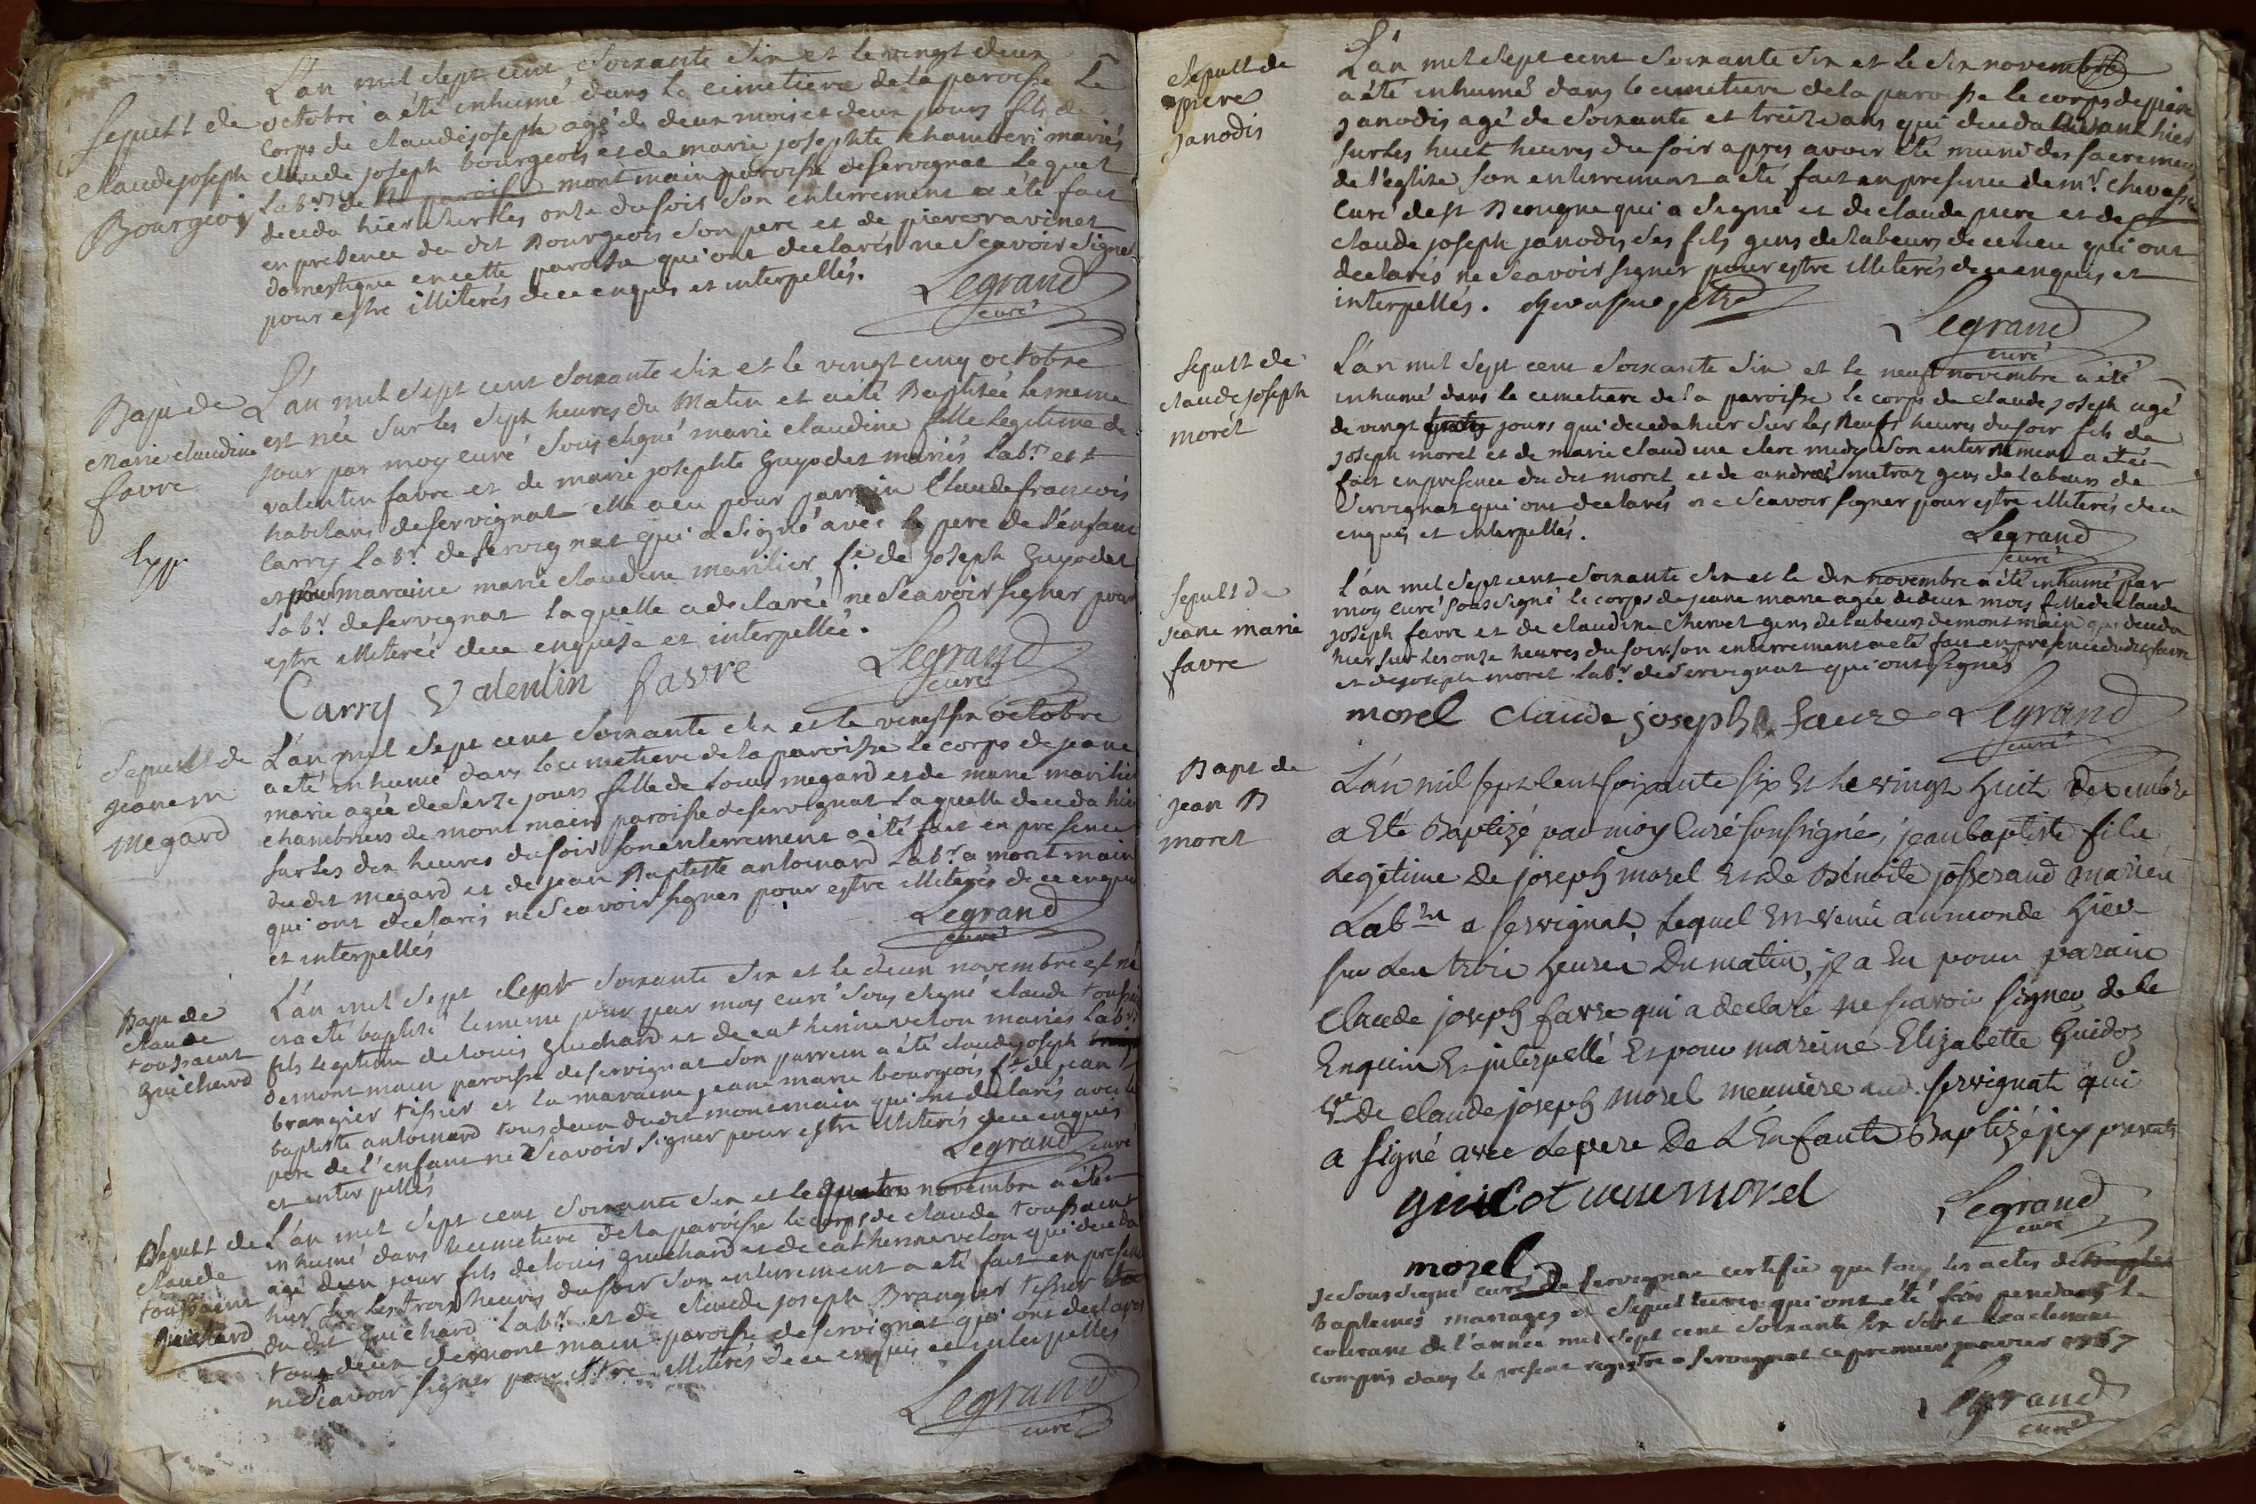 Sepult de
claude joseph
Bourgeois
L'an mil sept cent soixante six et le vingt deux
octobre a été inhumé dans le cimetiere de la paroisse le
corps de claude joseph agé de deux mois et deux jours fils de
claude joseph bourgeois et de marie josephte chamberi mariés
labrs de la paroisse montmain paroisse de servignat lequel
deceda hier sur les onze du soir son enterrement a été fait
en presence du dit Bourgeois son pere et de piere ravinet
domestique en cette paroisse qui ont declarés ne scavoir signer
pour estre illiterés de ce enquis et interpellés.
Legrand
curé
Bapt de
Marie claudine
favre
L'an mil sept cent soixante six et le vingt cinq octobre
est née sur les sept heures du Matin et a été Baptisée le meme
jour par moy curé sous signé marie claudine fille legitime de
valentin favre et de marie josephte Guyodet mariés labrs et
habitans de servignat elle a eu pour parrain Claude francois
Carry labr de servignat qui a signé avec le pere de l'enfant
et pour maraine marie claudine marilier fe de joseph Guyodet
labr de servignat laquelle a declarée ne scavoir signer pour
estre illiterée de ce enquise et interpellée.
Carry Valentin favre
Legrand
curé
Sepult de
jeane m
megard
L'an mil sept cent soixante six et le vingt six octobre
a été inhumé dans le cimetiere de la paroisse le corps de jeane
marie agée de seize jours fille de louis megard et de marie marilier
chambriers de mont main paroisse de servignat laquelle deceda hier
sur les dix heures du soir son enterrement a été fait en presence
du dit megard et de jean Baptiste antoinard labr a mont main
qui ont declarés ne scavoir signer pour estre illiterés de ce enquis
et interpellés
Legrand
curé
Bapt de
claude
toussaint
Guichard
L'an mil sept cept soixante six et le deux novembre est né
et a été baptisé le meme jour par moy curé sous signé claude toussaint
fils legitime de louis guichard et de catherine velon mariés labrs
de mont main paroisse de servignat son parrein a été claude joseph
brangier tissier et la maraine jeane marie bourgeois fe de jean
baptiste antoinard tous deux du dit mont main qui ont declarés avec le
pere de l'enfant ne scavoir signer pour estre illiterés de ce enquis
et interpellés
Legrand curé
Sepult de
claude
toussaint
guichard
L'an mil sept cent soixante six et le quatre novembre a été
inhumé dans le cimetiere de la paroisse le corps de claude toussaint
agé d'un jour fils de louis guichard et de catherine velon qui deceda
hier sur les trois heures du soir son enterrement a été fait en presence
du dit guichard labr et de claude joseph Brangier tissier
tous deux de mont main paroisse de servignat qui ont declarés
ne scavoir signer pour estre illiterés de ce enquis et interpellés
Legrand
curé
Sepult de
piere
janodis
L'an mil sept cent soixante six et le six novembre
a été inhumé dans le cimetiere de la paroisse le corps de piere
janodis agé de soixante et treize ans qui deceda avant hier
sur les huit heures du soir apres avoir été muni des sacremens
de l'eglise son enterrement a été fait en presence de mr chevassu
curé de st Benigne qui a signé et de claude piere et de
claude joseph janodis ses fils gens de labeurs de ce lieu qui ont
declarés ne scavoir signer pour estre illiterés de ce enquis et
interpellés.
Legrand
curé
Sepult de
claude joseph
morel
L'an mil sept cent soixante six et le neuf novembre a été
inhumé dans le cimetiere de la paroisse le corps de claude joseph agé
de vingt jours qui deceda hier sur les neufs heures du soir fils de
joseph morel et de marie claudine clerc midy son enterrement a été
fait en presence du dit morel et de andré metraz gens de labeurs de
Servignat qui ont declarés ne scavoir signer pour estre illiterés de ce
enquis et interpellés.
Legrand
curé
Sepult de
jeane marie
favre
L'an mil sept cent soixante six et le dix novembre a été inhumé par
moy curé sous signé le corps de jeane marie agée de deux mois fille de claude
joseph favre et de claudine chervet gens de labeurs de mont main qui deceda
hier sur les onze heures du soir son enterrement a été fait en presence du dit favre
et de joseph morel labr de servignat qui ont signés
morel claude joseph faure Legrand
curé
Bapt de
jean B
morel
L'an mil sept cent soixante six et le vingt huit decembre
a été Baptizé par moy curé soussigné, jean baptiste fils
Legitime de joseph morel et de Benoite josserand mariés
Labrs a servignat lequel est venu au monde hier
sur les trois heures du matin, il a eu pour parain
claude joseph favre qui a declaré ne scavoir signer de ce
Enquis et interpellé et pour mareine Elizabette Guidoz
ve de claude joseph morel meuniere aud. servignat qui
a signé avec le pere de L'Enfant Baptizé icy present
guidot veuve morel
Legrand
curé
morel
je sous signé curé de servignat certifie que tous les actes de
baptemes mariages et sepultures qui ont été fais pendant le
courant de l'année mil sept cent soixante six sont exactement
compris dans le present registre a servignat ce premier janvier 1767
Legrand
curé